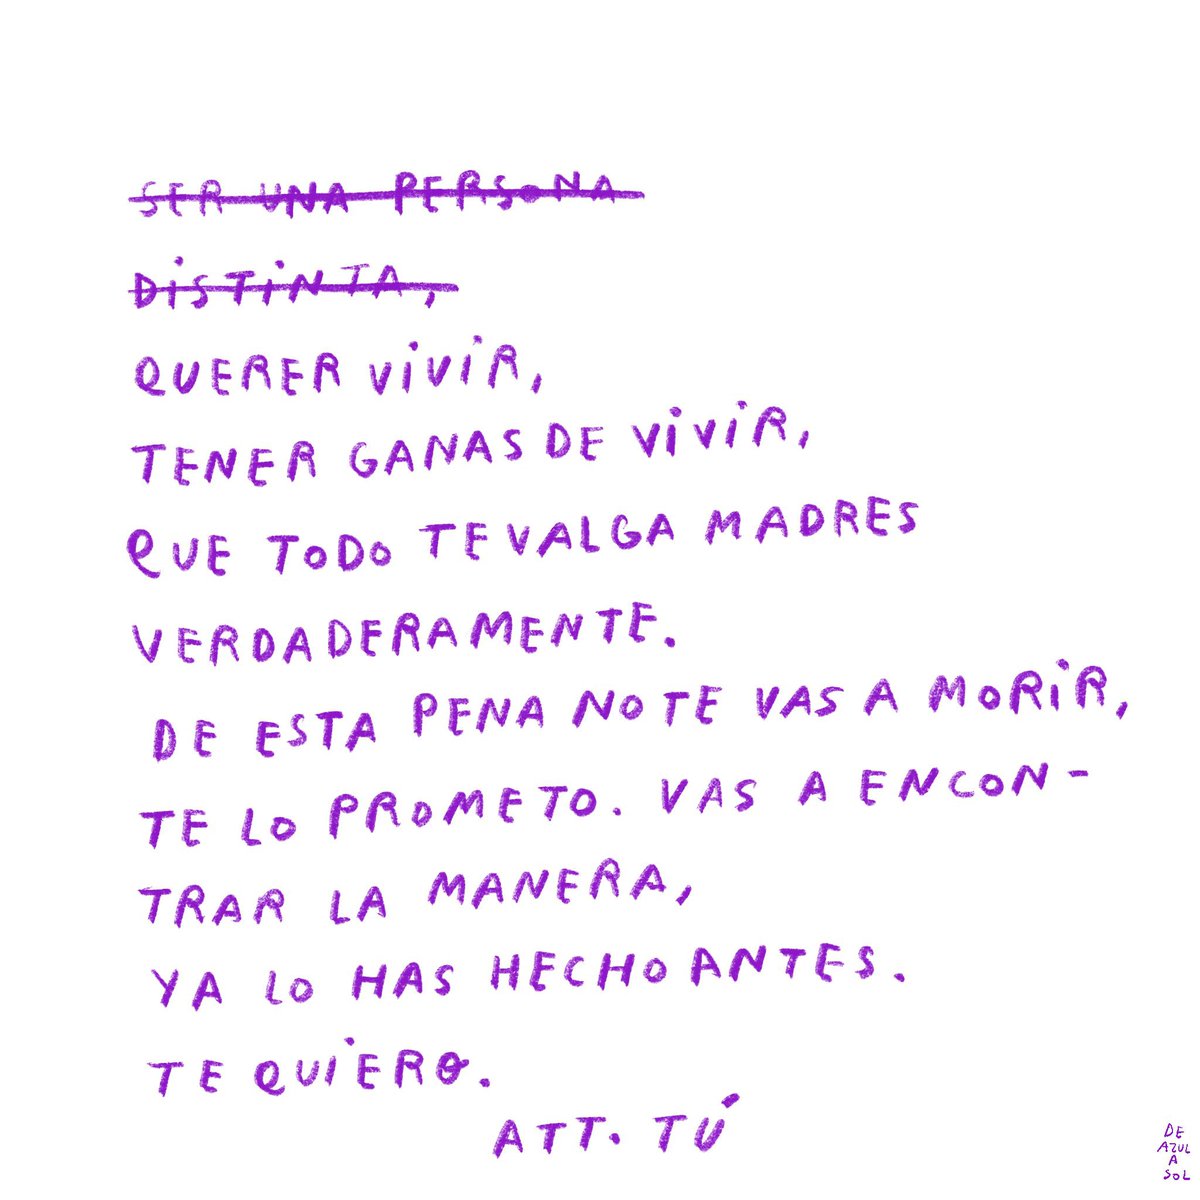 SER UNA PERSONA
DISTINTA,
QUERER VIVIR,
TENER GANAS DE VIVIR,
QUE TODO TE VALGA MADRES
VERDADERAMENTE.
DE ESTA PENA NO TE VAS A MORIR,
TE LO PROMETO. VAS A ENCON-
TRAR LA MANERA,
YA LO HAS HECHO ANTES.
TE QUIERO.
ATT. TÚ
DE
AZUL
A
SOL